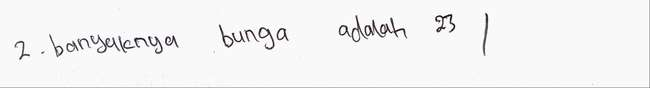 2. banyaknya bunga adalah 23 |